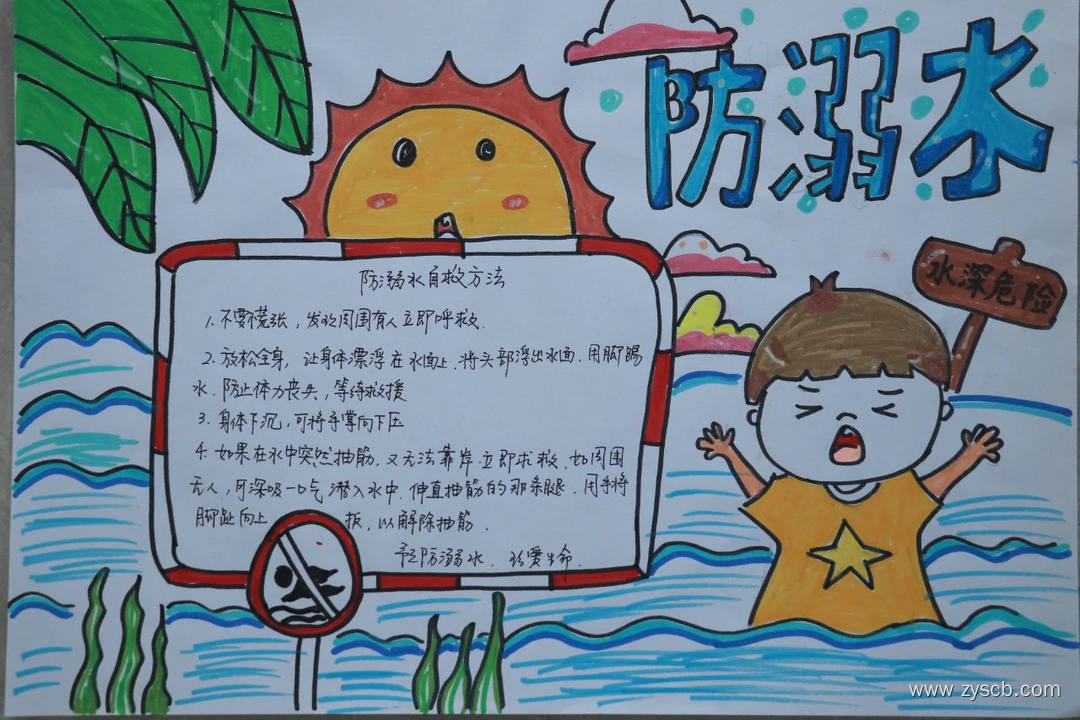 防溺水
水深危险
防溺水自救方法
1. 不要慌张，发现周围有人立即呼救.
2. 放松全身，让身体漂浮在水面上.将头部浮出水面.用脚踢
水.防止体力丧失，等待救援
3. 身体下沉，可将手掌向下压
4. 如果在水中突然抽筋.又无法靠岸.立即求救.如周围
无人，可深吸一口气潜入水中.伸直抽筋的那条腿.用手将
脚趾向上 扳，以解除抽筋.
预防溺水.珍爱生命.
www.zyscb.com